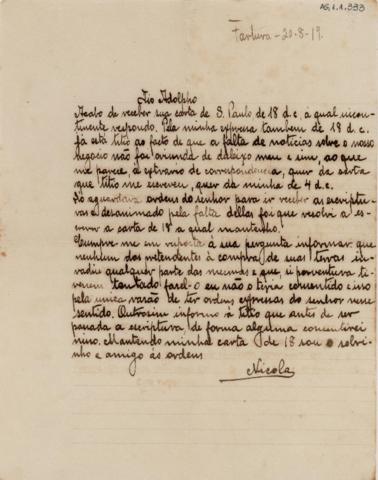 AG.1.1.333
Fartura - 20-8-19.
Tio Adolpho
Acabo de receber sua carta de S. Paulo de 18 d.c. à qual incon-
tinente respondo. Pela minha expressa tambem de 18 d.c.
já está titio ao facto de que a falta de noticias sobre o nosso
negocio não foi oriunda de deleixo meu e sim, ao que
me parece, a extravio de correspondencia, quer da carta
que titio me escreveu, quer da minha de 4 d.c.
Só aguardava ordens do senhor para ir receber as escriptu-
ras e desanimado pela falta dellas foi que resolvi a es-
crever a carta de 18 a qual mantenho.
Cumpre-me em resposta à sua pergunta informar que
nenhum dos pretendentes à compra de suas terras in-
vadiu qualquer parte das mesmas e que si porventura ti-
verem tentado fazel-o eu não o teria consentido e isso
pela unica razão de ter ordens expressas do senhor nesse
sentido. Outrosim informo à titio que antes de ser
passada a escriptura de forma alguma consentirei
nisso. Mantendo minha carta de 18 sou o sobri-
nho e amigo às ordens
Nicola